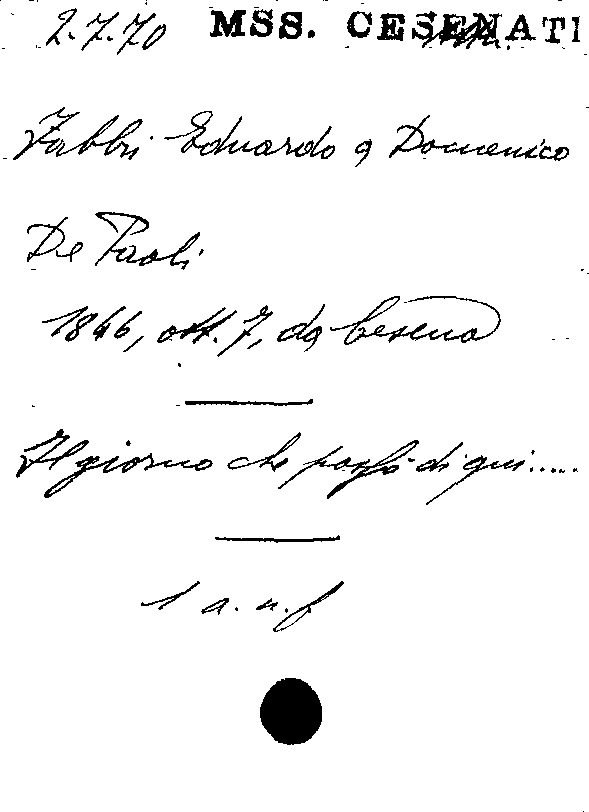 2.7.70 MSS. CESENATI
Fabbri Eduardo a Domenico
De Paoli
1846, ott. 7, da Cesena
Il giorno che passò di qui.....
1 a. n. f